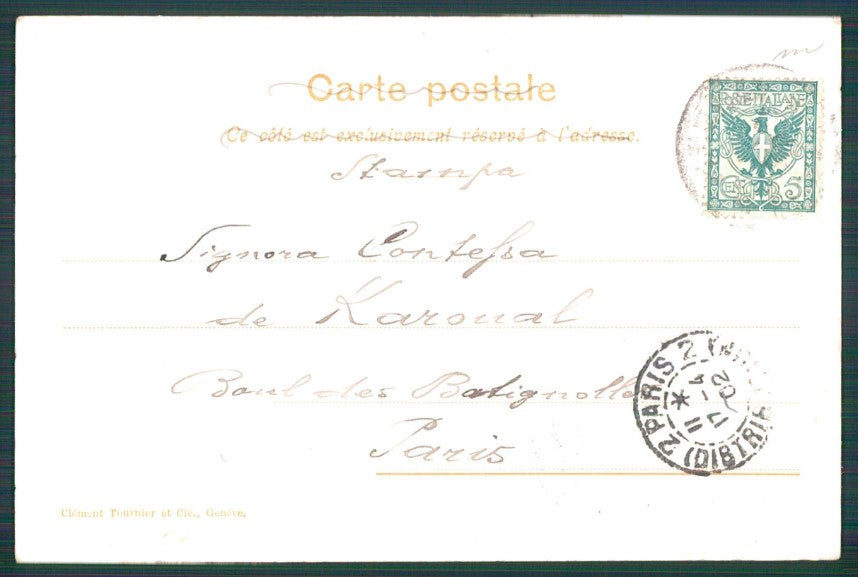 Carte postale
POSTE ITALIANE
Ce côté est exclusivement réservé à l'adresse.
Stampa
CEN. 5
Signora Contessa
de Karoual
Boul des Batignolles
Paris
2 PARIS 2 (DISTRIB
11
17 - 4
02
Clément Tournier et Cie., Genève.